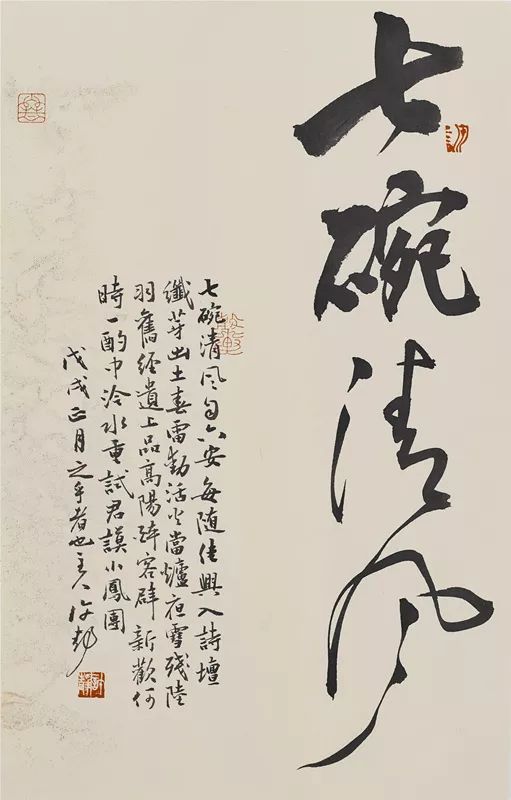 七碗清风
七碗清风自六安每隨佳興入詩壇
纖芽出土春雷動活火當爐夜雪殘陸
羽舊經遺上品高陽醉客辟新歡何
時一酌中泠水重試君謨小鳳團
戊戌正月之乎者也主人許静